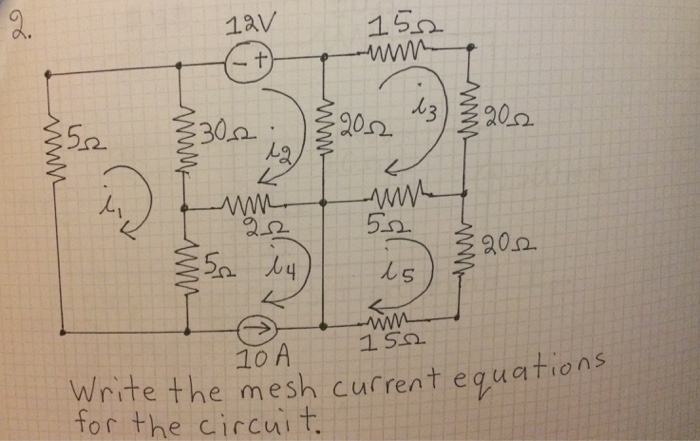 2.
12V
15Ω
- +
5Ω
30Ω
i2
20Ω
i3
20Ω
i1
2Ω
5Ω
5Ω
i4
i5
20Ω
10A
15Ω
Write the mesh current equations
for the circuit.